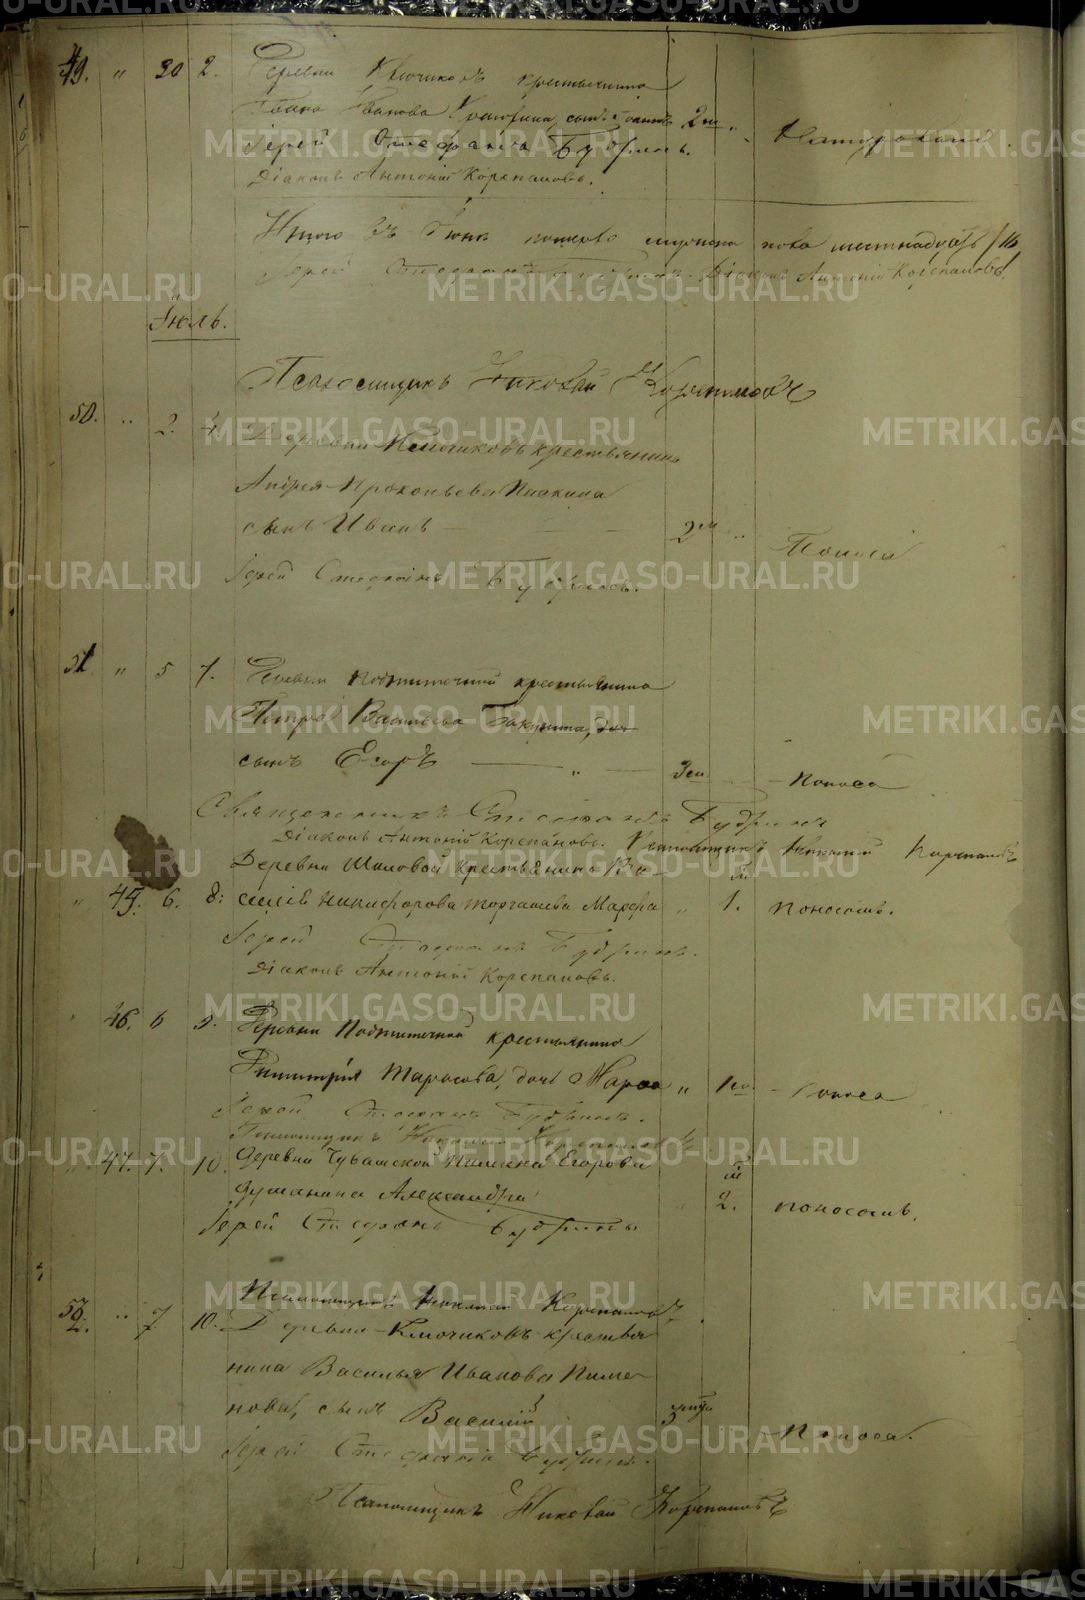 49. " 30 2. Деревни Ключиковъ крестьянина
Ивана Иванова сынъ Іоаннъ 2 м "
Іерей Стефанъ Будринъ.
Діаконъ Антоній Корепановъ.
Итого въ Іюнѣ мужеска пола шестнадцать /16
Іерей Стефанъ Будринъ - Діаконъ Антоній Корепановъ.
Іюль.
Псаломщикъ Николай Корепановъ
50. " 2. 4. Деревни Ключиковъ крестьянина
Андрея Прокопьева
сынъ Иванъ — 2 м " Поноса
Іерей Стефанъ Будринъ.
51. " 5 7. Деревни Подпиточной крестьянина
Петра Васильева
сынъ Егоръ — " — 3 м — Поноса
Священникъ Стефанъ Будринъ
Діаконъ Антоній Корепановъ. Псаломщикъ Николай Корепановъ
Деревни Шиловой крестьянина Ва-
" 45. 6. 8. силія Никифорова Торгашева Марфа " 1. поносомъ.
Іерей Стефанъ Будринъ.
Діаконъ Антоній Корепановъ.
46. 6 9. Деревни Подпиточной крестьянина
Димитрія Тарасова, дочь Марфа " 1 — Поноса
Іерей Стефанъ Будринъ.
Псаломщикъ Николай Корепановъ
" 47. 7. 10. Деревни Чувашской Егорова
Александра " 2. поносомъ.
Іерей Стефанъ Будринъ
Псаломщикъ Николай Корепановъ
52. " 7 10. Деревни Ключиковъ крестья
нина Василья Иванова Пиме-
нова, сынъ Василій 3 Поноса.
Іерей Стефаній Будринъ.
Псаломщикъ Николай Корепановъ
METRIKI.GASO-URAL.RU